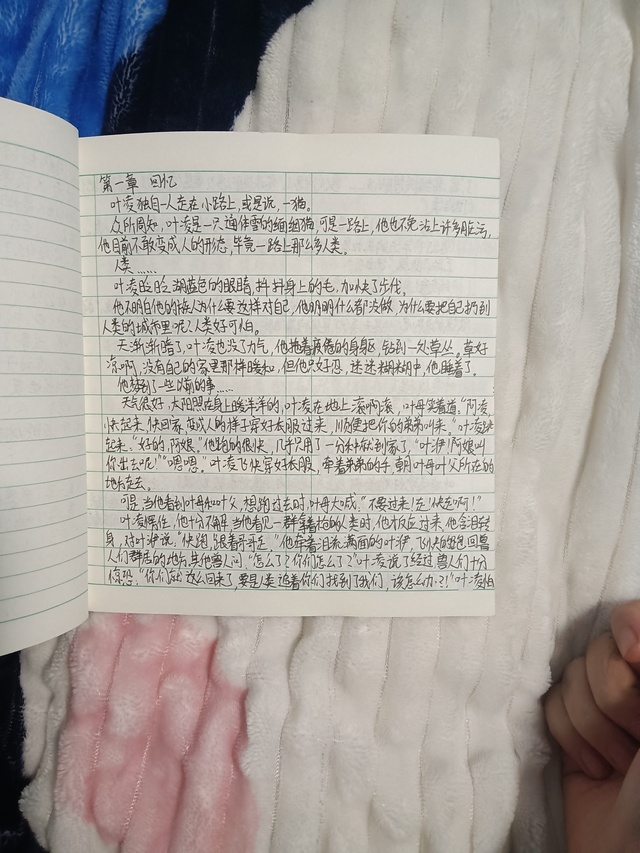 第一章 回忆
叶凌独自一人走在小路上,或是说,一猫。
众所周知,叶凌是一只通体雪的缅细猫,可是一路上,他也不免沾上许多脏污,
他目前不敢变成人的形态,毕竟一路上那么多人类。
人类……
叶凌眨眨湖蓝色的眼睛,抖抖身上的毛,加快了步伐。
他不明白他的族人为什么要这样对自己,他明明什么都没做,为什么要把自己扔到
人类的城市里呢?人类好可怕。
天渐渐暗了,叶凌也没了力气,他拖着疲倦的身躯,钻到一处草丛。草好
凉啊,没有自己的家里那样暖和,但他只好忍,迷迷糊糊中,他睡着了。
他梦到了一些以前的事……
天气很好,太阳照在身上暖洋洋的,叶凌在地上滚啊滚,叶母笑着道:“阿凌,
快起来,快回家,变成人的样子穿好衣服过来,顺便把你的弟弟叫来。”叶凌
起来:“好的,阿娘。”他跑的很快,几乎只用了一分钟就到家了,“叶浉!阿娘叫
你出去呢!”“嗯嗯。”叶凌飞快穿好衣服,牵着弟弟的手,朝叶母叶父所在的
地方走去。
可是,当他看到叶母和叶父,想跑过去时,叶母大喊:“不要过来!走!快走啊!”
叶凌愣住,他十分不解,当他看见一群拿着枪的人类时,他才反应过来,他含泪转
身,对叶浉说:“快跑,跟着哥哥走。”他牵着泪流满面的叶浉,飞快的跑回兽
人们群居的地方,其他兽人问:“怎么了?你们怎么了?”叶凌说了经过,兽人们十分
惊恐:“你们就这么回来了,要是人类追着你们找到了我们,该怎么办?!”叶凌怕